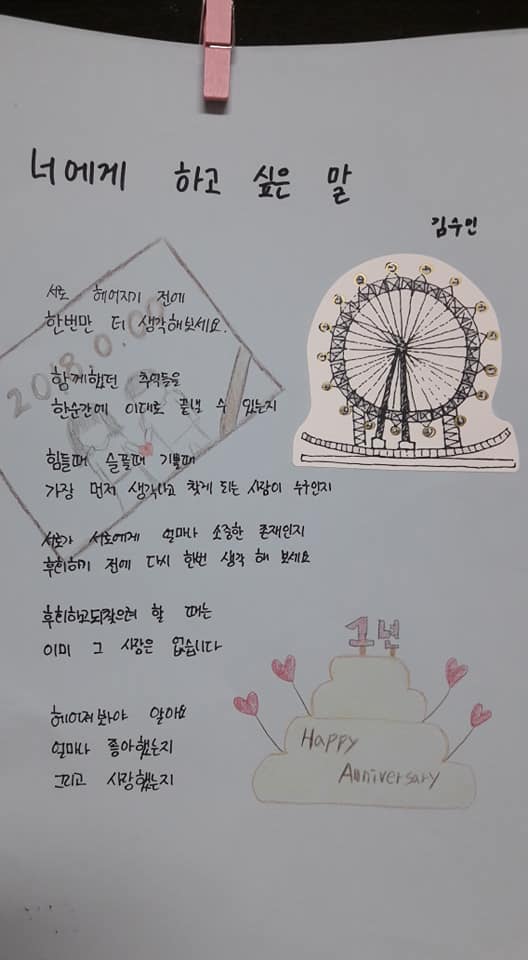 너에게 하고 싶은 말
김수인
서로 헤어지기 전에
한번만 더 생각해보세요.
2018.0.00
함께했던 추억들을
한순간에 이대로 끝낼 수 있는지
힘들때 슬플때 기쁠때
가장 먼저 생각나고 찾게 되는 사람이 누구인지
서로가 서로에게 얼마나 소중한 존재인지
후회하기 전에 다시 한번 생각 해 보세요
후회하고되찾으려 할 때는
이미 그 사랑은 없습니다
헤어져봐야 알아요
얼마나 좋아했는지
그리고 사랑했는지
1년
Happy
Anniversary